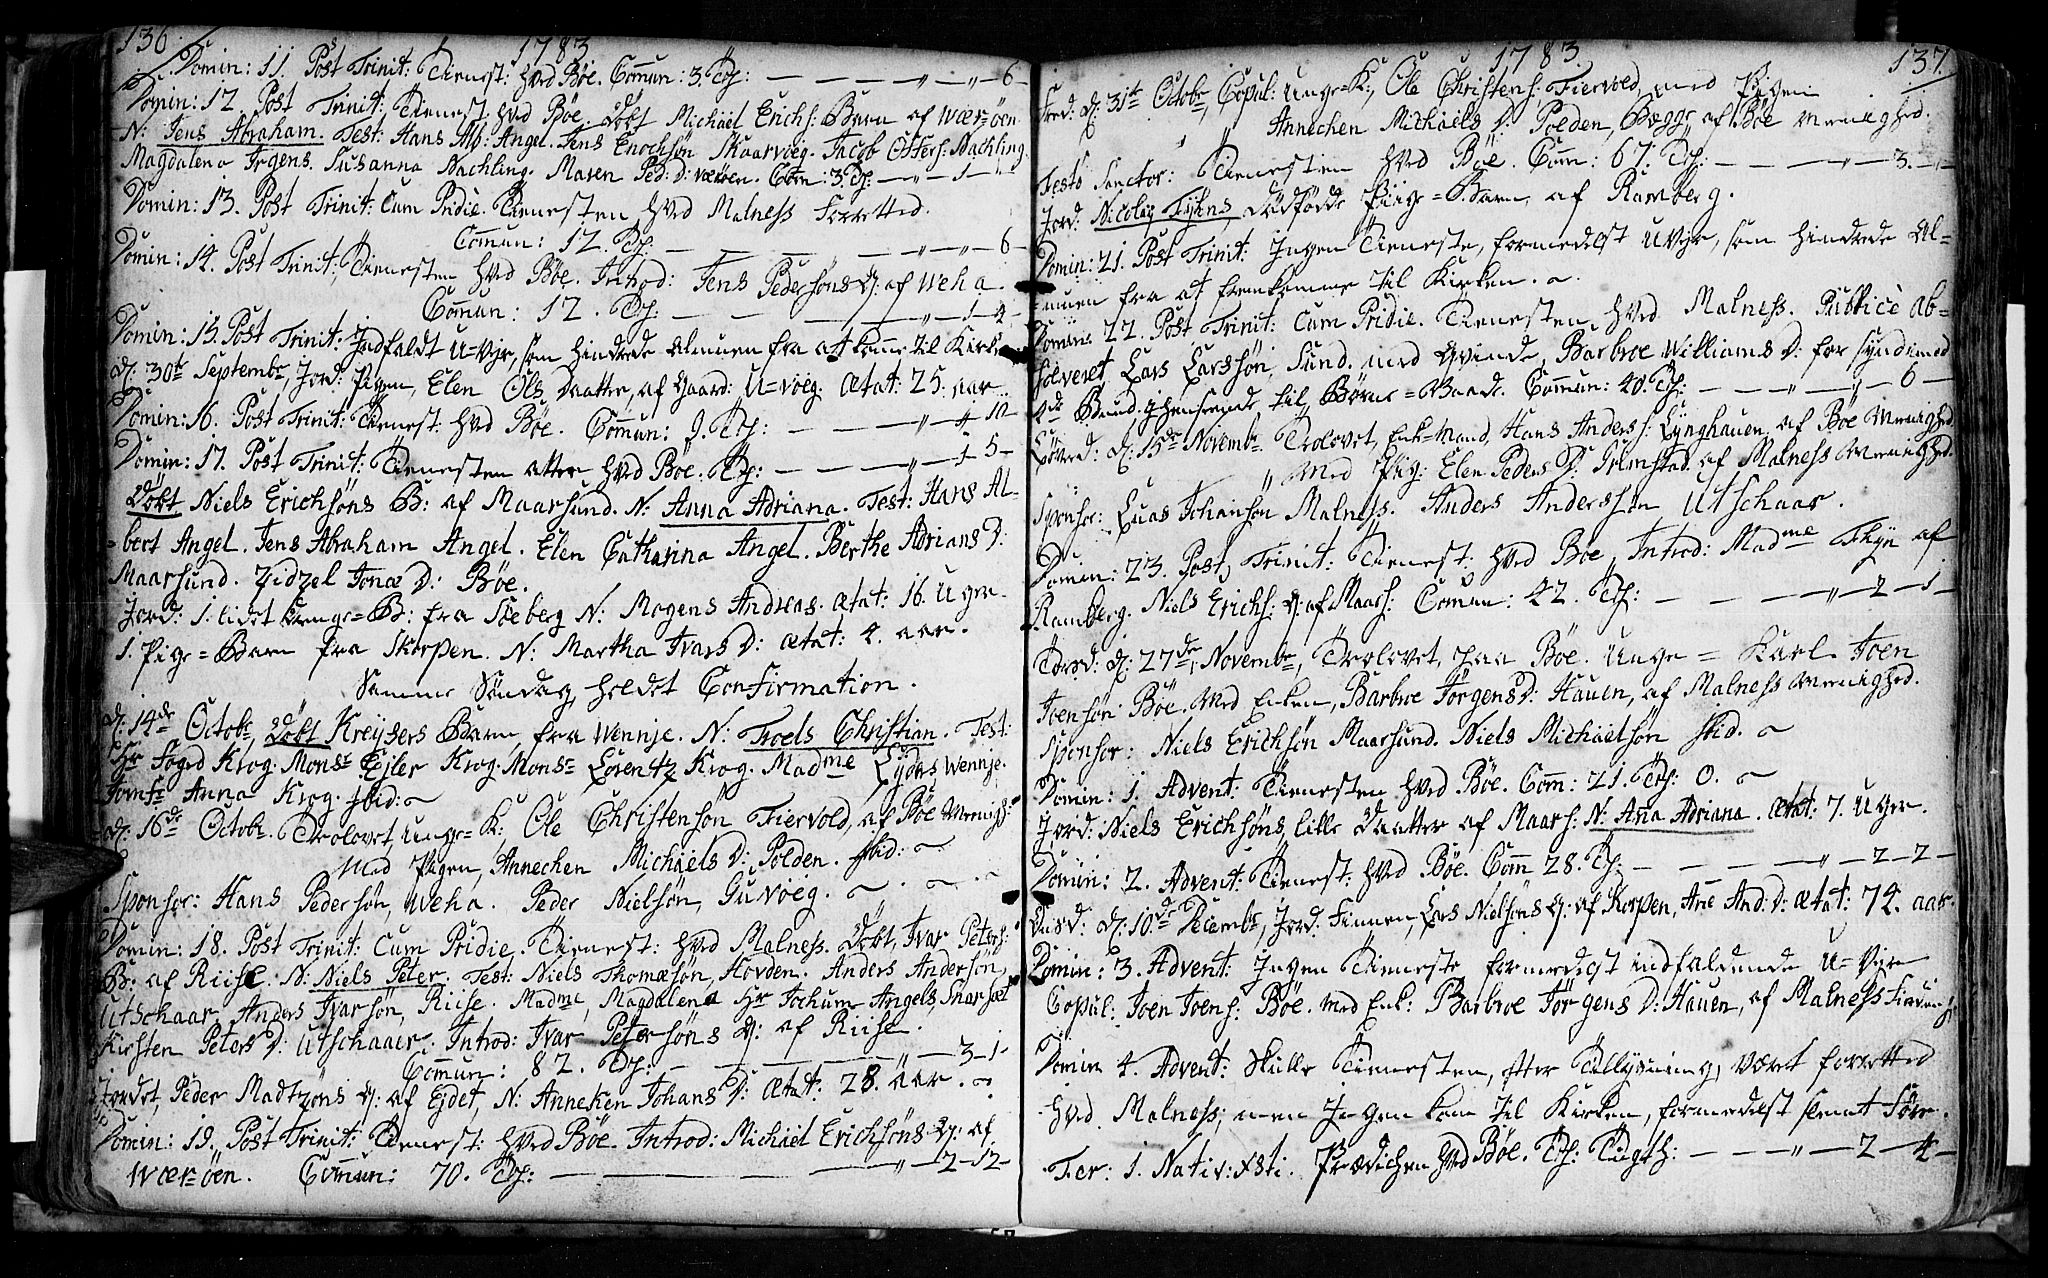 136. 1783
Domin: 11. Post Trinit: Tienest: hved Böe. Comun: 3. Tſ: — — — „ — „ — 6 —
Domin: 12. Post Trinit: Tienest: hved Böe. Döbt Michael Erichs: Barn af Wær=öen
N: Jens Abraham. Test: Hans Alb: Angel. Jens Enochsön Skaarvog. Jacob Offers: Nachling
Magdalena Irgens. Susanna Nachling. Maren Ped: D: værøen. Com: 3. Tſ: — „ — 1 —
Domin: 13. Post Trinit: Cum Pridie. Tienesten hved Malness Forretted.
Comun: 12. Tſ: — — — „ — „ — 6 —
Domin: 14. Post Trinit: Tienesten hved Böe. Introd: Jens Pedersöns Q: af Weha.
Comun: 12. Tſ: — — — „ — 1 — 4 —
Domin: 15. Post Trinit: Indfaldt U=Vejr, som hindrede Almuen fra at komme til Kirken
d: 30te Septembr, Jord: Pigen, Elen Ols Daatter, af Gaard: U=voeg. Ætat: 25. aar
Domin: 16. Post Trinit: Tienest: hved Böe. Comun: 9. Tſ: — — — „ — 4 — 10 —
Domin: 17. Post Trinit: Tienesten atter hved Böe. Tſ: — — — „ — 1 — 5 —
Döbt Niels Erichsöns B: af Maarsund. N: Anna Adriana. Test: Hans Al=
=bert Angel. Jens Abraham Angel. Elen Catharina Angel. Berthe Adrians D:
Maarsund. Zidzel Jonæ D: Böe.
Jord: 1. lidet Drenge=B: fra Steberg N: Mogens Andreas. Ætat: 16. Uger.
1. Pige=Barn fra Skorpen. N: Martha Ivars D: Ætat: 4. aar.
Samme Söndag holdet Confirmation.
d: 14de Octobr, Döbt Kreysers Barn fra Wennje. N: Troels Christian. Test:
Hr Foged Krog. Monsr Ejler Krog. Monsr Lorentz Krog. Madme Lyders Wennje.
Jomfr Anna Krog. ibid: ~
d: 16de Octobr. Trolovet Unge=K: Ole Christensön Fiervold, af Böe Menigh:
Med Pigen, Annechen Michaels D: Polden. ibid: ~
Sponsor: Hans Pedersön, Weha. Peder Nielsön, Guvöeg. ~ . ~ . ~
Domin: 18. Post Trinit: Cum Pridie. Tienest: hved Malness. Döbt, Ivar Peters:
B: af Riise. N: Niels Peter. Test: Niels Thomæsön, Hovden. Anders Andersön,
Utschaar Anders Ivarsön, Riise. Madme, Magdalena Hr Jochum Angels, Snarsæt
Kirsten Peters D: Utschaaer. Introd: Ivar Petersöns Q: af Riise.
Comun: 82. Tſ: — — — „ — 3 — 1 —
Jordet, Peder Madtzöns Q: af Ejdet, N: Anneken Johans D: Ætat: 28. aar. ~
Domin: 19. Post Trinit: Tienest: hved Böe. Introd: Michael Erichsöns Q: af
Wær=öen. Comun: 70. Tſ: — — — „ — 2 — 12 —
1783. 137.
Fred: d: 31te Octobr, Copul: Unge=K:, Ole Christens: Fiervold, med Pigen
Annechen Michaels D: Polden, Begge af Böe Menighed.
Festo Sanctor: Tienesten hved Böe. Com: 67. Tſ: — — — „ — 3. — „ —
Jord: Nicolay Tykens, Dödfödde Piige=Barn, af Ramberg.
Domin: 21. Post Trinit: Ingen Tieneste, formedelst UVejr, som hindrede Al=
muen fra at fremkomme til Kirken. ~ .
Domin: 22. Post Trinit: Cum Pridie. Tienesten hved Malness. Publicè ab=
solveret, Lars Larssön, Sund. med Qvinde, Barbroe Williams D: for Synd imod
Comun: 40. Tſ: — — — „ — „ — 6 —
Löverd: d: 15de Novembr. Trolovet, Enk=Mand, Hans Anderss: Lynghauen, af Böe Menighed
„ Med Pig: Elen Peders D: Grimstad. af Malness Menighed.
Sponsor: Lucas Johansön Malness. Anders Anderssön Utschaar.
Domin: 23. Post, Trinit: Tienest: hved Böe, Introd: Madme Thyn af
Ramberg. Niels Erichs: Q: af Maars: Comun: 42. Tſ: — — — „ — 2 — 1 —
Torsd: d: 27de, Novembr, Trolovet, paa Böe. Unge=Karl. Joen
Joensön Böe. Med Enken, Barbroe Jörgens D: Hauen, af Malness Menighed.
Sponsor: Niels Erichsön Maarsund. Niels Michaelsön ibid. ~
Domin: 1. Advent: Tienesten hved Böe. Com: 21. Tſ: 0. ~
Jord: Niels Erichsöns, lille Daatter af Maars: N: Ana Adriana. Ætat: 7. Uger.
Domin: 2. Advent: Tienest: hved Böe. Com 28. Tſ: — — — „ — 2 — 2 —
Onsd: d: 10de Decembr, Jord: Finnen, Lars Nielsöns Q: af Korpen, Ane And: D: Ætat: 74. aar.
Domin: 3. Advent: Ingen Tieneste formedelst indfaldende U=Vejr
Copul: Joen Joens: Böe. med Enk: Barbroe Jörgens D: Hauen, af Malness
Domin 4. Advent: Skulle Tienesten, efter Tillysning, været forretted
hved Malness; men Ingen kom til Kirken, formedelst slemt Före.
Fer: 1. Nativ: Xsti. Prædichen hved Böe. Tſ: Tugth: — — „ — 2 — 4 —